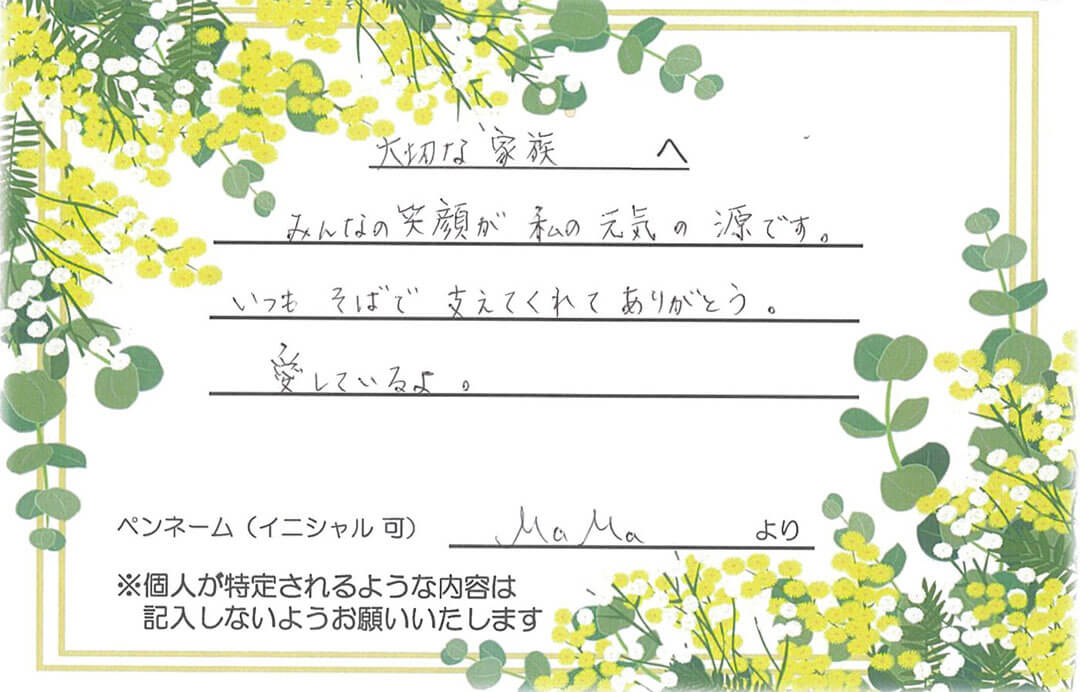 大切な家族 へ
みんなの笑顔が 私の元気の源です。
いつも そばで 支えてくれて ありがとう。
愛しているよ。
ペンネーム（イニシャル 可） MaMa より
※個人が特定されるような内容は
記入しないようお願いいたします